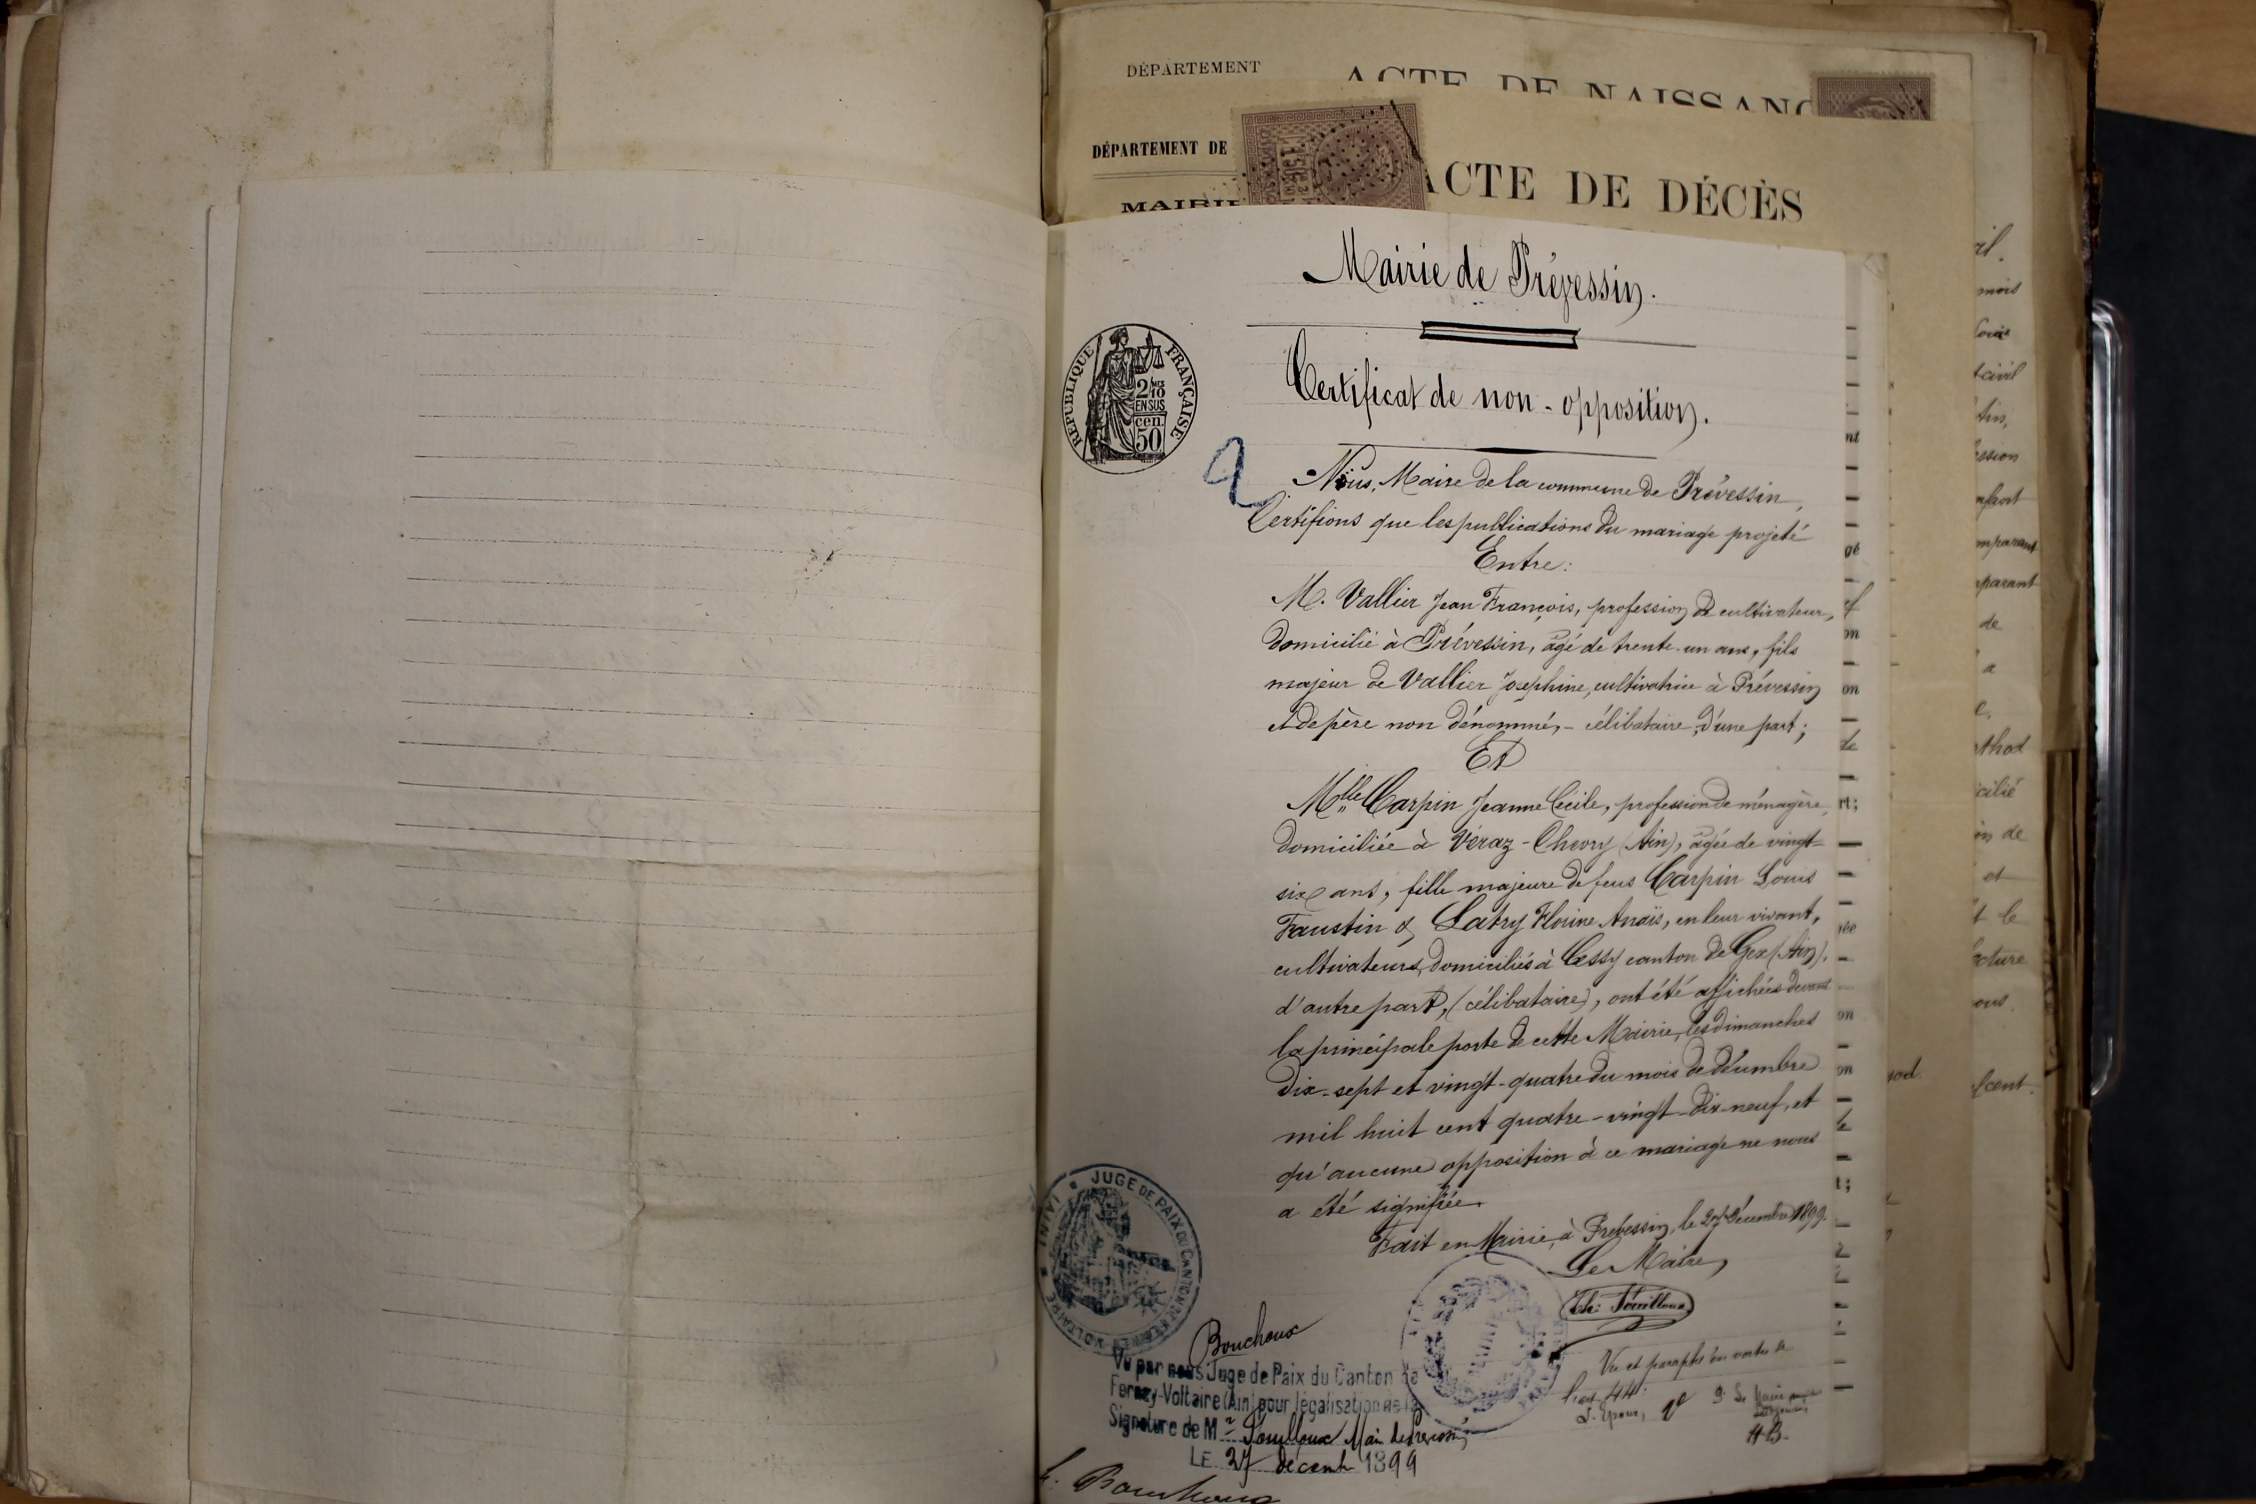 DÉPARTEMENT
ACTE DE NAISSANC
DÉPARTEMENT DE
MAIRIE
ACTE DE DÉCÈS
Mairie de Prévessin.
RÉPUBLIQUE FRANÇAISE
2/10
EN SUS
cen.
50
Certificat de non-opposition.
2
Nous, Maire de la commune de Prévessin,
Certifions que les publications du mariage projeté
Entre:
M. Vallier Jean François, profession de cultivateur,
domicilié à Prévessin, âgé de trente-un ans, fils
majeur de Vallier Joséphine, cultivatrice à Prévessin
et de père non dénommé, - célibataire, d'une part;
Et
Mlle Carpin Jeanne Cécile, profession de ménagère,
domiciliée à Véraz-Chevry (Ain), âgée de vingt-
six ans, fille majeure de feus Carpin Louis
Faustin & Latry Florine Anaïs, en leur vivant,
cultivateurs, domiciliés à Cessy canton de Gex (Ain),
d'autre part, (célibataire), ont été affichées devant
la principale porte de cette Mairie, les dimanches
dix-sept et vingt-quatre du mois de décembre
mil huit cent quatre-vingt-dix-neuf, et
qu'aucune opposition à ce mariage ne nous
a été signifiée.
Fait en Mairie, à Prévessin, le 27 Décembre 1899.
Le Maire,
JUGE DE PAIX DU CANTON DE FERNEY VOLTAIRE * (AIN) *
Bouchoux
Vu par nous Juge de Paix du Canton de
Ferney-Voltaire (Ain) pour légalisation de la
Signature de Mr Fouilloux Maire de Prévessin
LE 27 décemb 1899
Vu et paraphé
44
H B.
Bouchoux
il.
mois
Louis
civil
tin,
ession
mparant
parant
de
a
thod
cilié
on de
et
t le
cture
ous.
nt
gé
on
on
de
rt;
on
on
le
t;